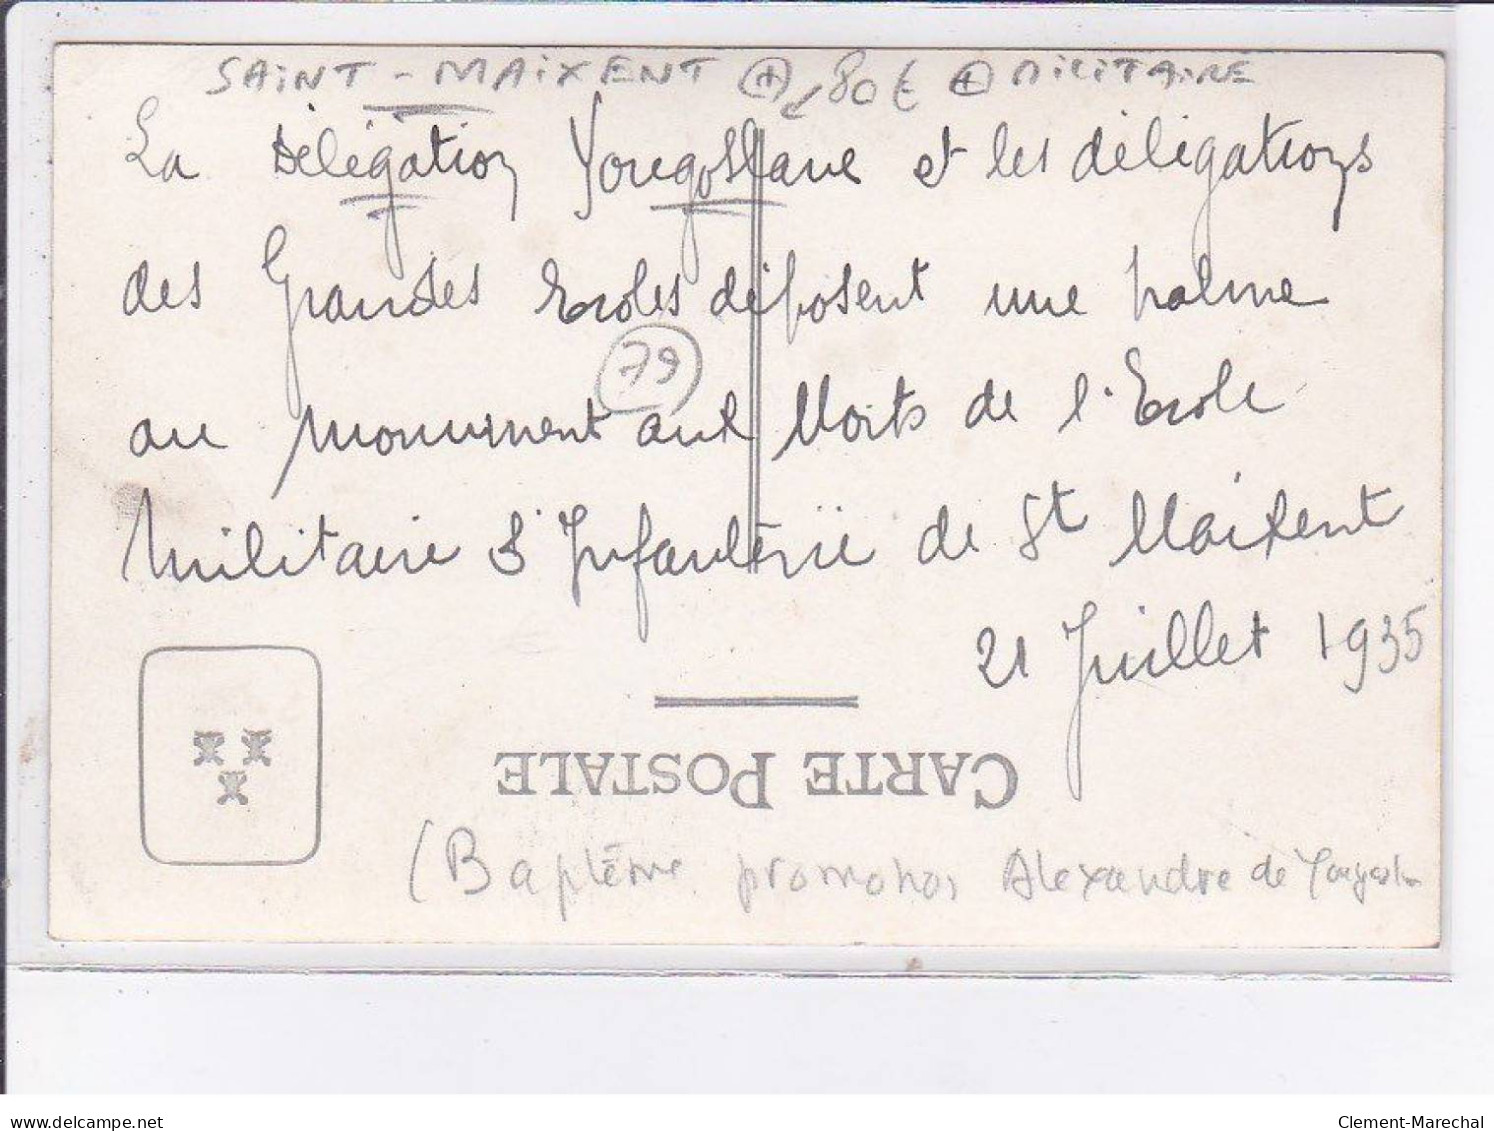 SAINT-MAIXENT + 80€ + MILITAIRE
La Délégation Yougoslave et les délégations
des Grandes Ecoles déposent une palme
79
au monument aux Morts de l'Ecole
Militaire d'Infanterie de St Maixent
21 Juillet 1935
CARTE POSTALE
(Baptême promotion Alexandre de
delcampe.net
Clement-Marechal